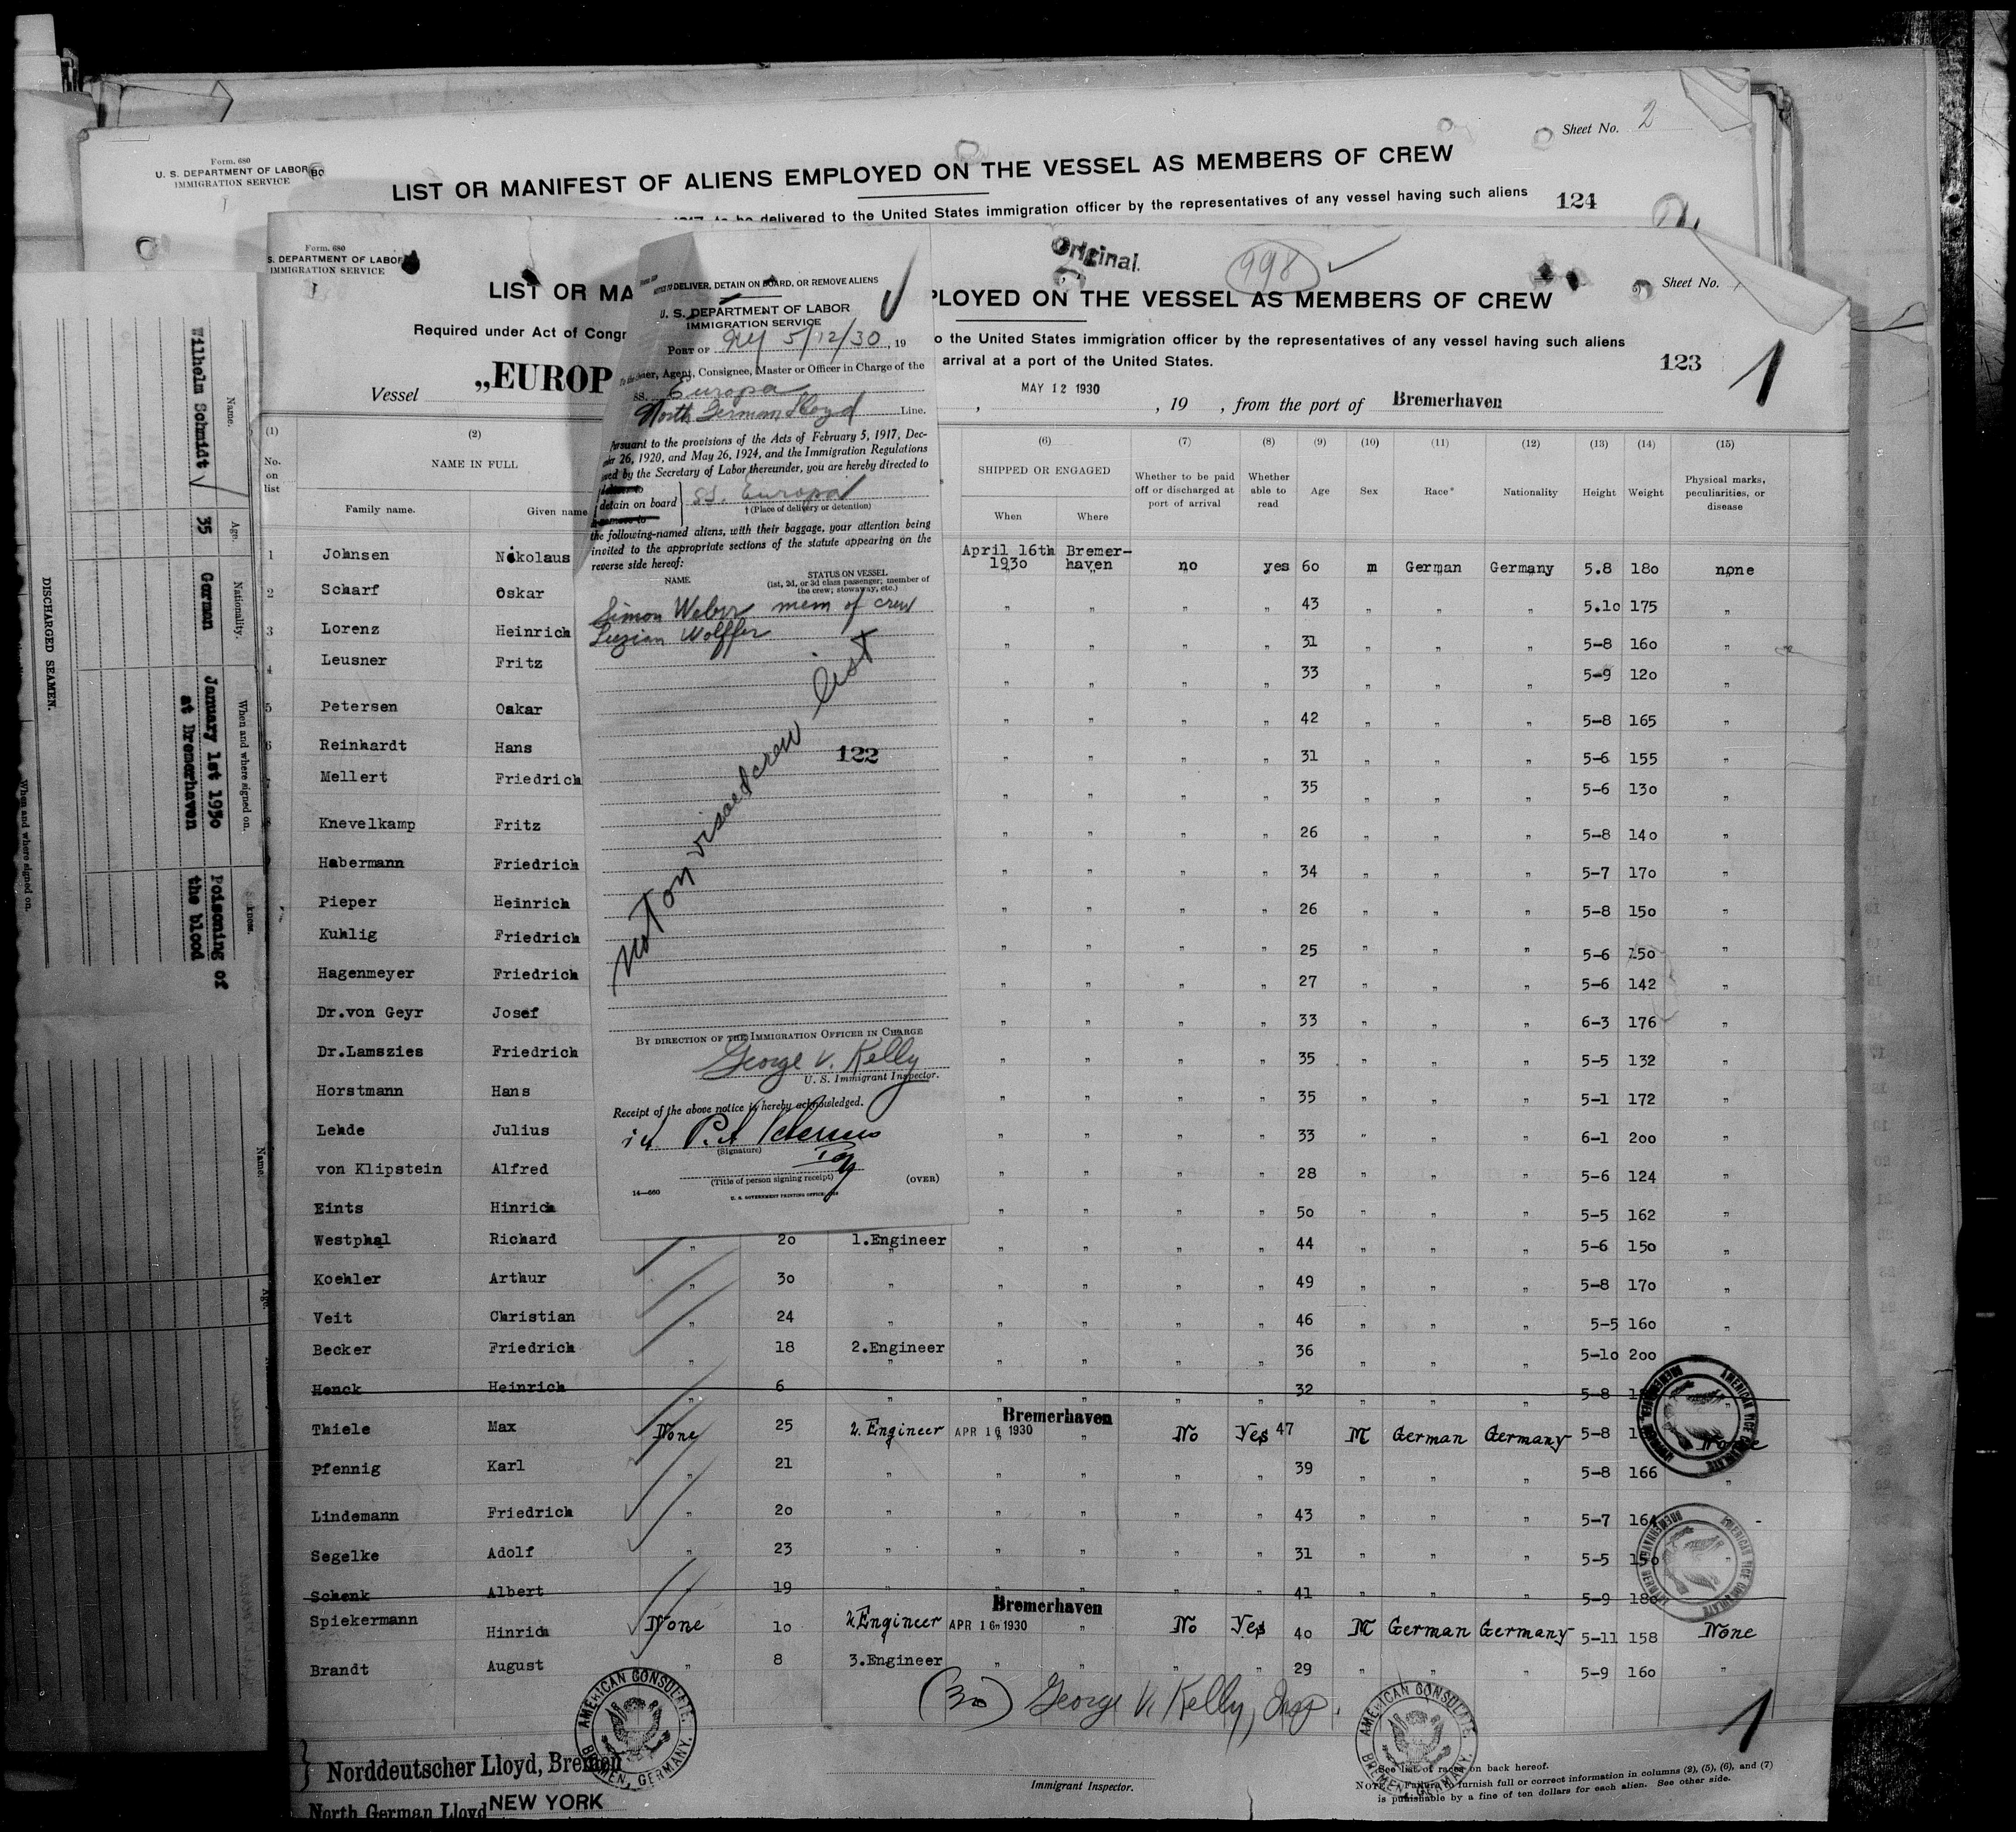 Sheet No. 2
Form. 680
U. S. DEPARTMENT OF LABOR
IMMIGRATION SERVICE
LIST OR MANIFEST OF ALIENS EMPLOYED ON THE VESSEL AS MEMBERS OF CREW
to be delivered to the United States immigration officer by the representatives of any vessel having such aliens
124
Form. 680
S. DEPARTMENT OF LABOR
IMMIGRATION SERVICE
Original.
998
Sheet No.
LIST OR MA
PLOYED ON THE VESSEL AS MEMBERS OF CREW
Required under Act of Congr
o the United States immigration officer by the representatives of any vessel having such aliens
arrival at a port of the United States.
123
1
Vessel „EUROP
MAY 12 1930
, 19 , from the port of Bremerhaven
(1) (2) (6) (7) (8) (9) (10) (11) (12) (13) (14) (15)
No. on list
NAME IN FULL
Family name. Given name
SHIPPED OR ENGAGED
When Where
Whether to be paid off or discharged at port of arrival
Whether able to read
Age
Sex
Race*
Nationality
Height
Weight
Physical marks, peculiarities, or disease
1 Johnsen Nikolaus April 16th 1930 Bremer-haven no yes 60 m German Germany 5.8 180 none
2 Scharf Oskar „ „ „ „ 43 „ „ „ 5.10 175 „
3 Lorenz Heinrich „ „ „ „ 31 „ „ „ 5-8 160 „
4 Leusner Fritz „ „ „ „ 33 „ „ „ 5-9 120 „
5 Petersen Oakar „ „ „ „ 42 „ „ „ 5-8 165 „
6 Reinhardt Hans „ „ „ „ 31 „ „ „ 5-6 155 „
Mellert Friedrich „ „ „ „ 35 „ „ „ 5-6 130 „
Knevelkamp Fritz „ „ „ „ 26 „ „ „ 5-8 140 „
Habermann Friedrich „ „ „ „ 34 „ „ „ 5-7 170 „
Pieper Heinrich „ „ „ „ 26 „ „ „ 5-8 150 „
Kuhlig Friedrich „ „ „ „ 25 „ „ „ 5-6 150 „
Hagenmeyer Friedrich „ „ „ „ 27 „ „ „ 5-6 142 „
Dr.von Geyr Josef „ „ „ „ 33 „ „ „ 6-3 176 „
Dr.Lamszies Friedrich „ „ „ „ 35 „ „ „ 5-5 132 „
Horstmann Hans „ „ „ „ 35 „ „ „ 5-1 172 „
Lehde Julius „ „ „ „ 33 „ „ „ 6-1 200 „
von Klipstein Alfred „ „ „ „ 28 „ „ „ 5-6 124 „
Eints Hinrich „ „ „ „ 50 „ „ „ 5-5 162 „
Westphal Richard „ 20 1.Engineer „ „ „ „ 44 „ „ „ 5-6 150 „
Koehler Arthur „ 30 „ „ „ „ „ 49 „ „ „ 5-8 170 „
Veit Christian „ 24 „ „ „ „ „ 46 „ „ „ 5-5 160 „
Becker Friedrich „ 18 2.Engineer „ „ „ „ 36 „ „ „ 5-10 200
Henck Heinrich „ 6 „ „ „ „ „ 32 „ „ „ 5-8
Thiele Max None 25 2. Engineer APR 16 1930 Bremerhaven No Yes 47 M German Germany 5-8
Pfennig Karl „ 21 „ „ „ „ „ 39 „ „ „ 5-8 166 „
Lindemann Friedrich „ 20 „ „ „ „ „ 43 „ „ „ 5-7 164
Segelke Adolf „ 23 „ „ „ „ „ 31 „ „ „ 5-5 150 „
Schenk Albert „ 19 „ „ „ „ „ 41 „ „ „ 5-9 180
Spiekermann Hinrich None 10 2. Engineer APR 16 1930 Bremerhaven No Yes 40 M German Germany 5-11 158 None
Brandt August „ 8 3.Engineer „ „ „ „ 29 „ „ „ 5-9 160 „
(30) George V. Kelly, Insp.
1
AMERICAN CONSULATE, BREMEN, GERMANY.
AMERICAN CONSULATE, BREMEN, GERMANY.
AMERICAN VICE CONSULATE
AMERICAN VICE CONSULATE
Norddeutscher Lloyd, Bremen
North German Lloyd NEW YORK
Immigrant Inspector.
See list of races on back hereof.
NOTE.—Failure to furnish full or correct information in columns (2), (5), (6), and (7)
is punishable by a fine of ten dollars for each alien. See other side.
NOTICE TO DELIVER, DETAIN ON BOARD, OR REMOVE ALIENS
U. S. DEPARTMENT OF LABOR
IMMIGRATION SERVICE
PORT OF NY 5/12/30, 19
To the Owner, Agent, Consignee, Master or Officer in Charge of the
SS. Europa
North German Lloyd Line.
Pursuant to the provisions of the Acts of February 5, 1917, Dec-
ember 26, 1920, and May 26, 1924, and the Immigration Regulations
issued by the Secretary of Labor thereunder, you are hereby directed to
deliver to
detain on board SS. Europa
or remove to
† (Place of delivery or detention)
the following-named aliens, with their baggage, your attention being
invited to the appropriate sections of the statute appearing on the
reverse side hereof:
NAME
STATUS ON VESSEL
(1st, 2d, or 3d class passenger; member of
the crew; stowaway, etc.)
Simon Weber mem of crew
Luzian Wolffer
not on visaed crew list
122
BY DIRECTION OF THE IMMIGRATION OFFICER IN CHARGE
George V. Kelly
U. S. Immigrant Inspector.
Receipt of the above notice is hereby acknowledged.
(Signature)
(Title of person signing receipt)
(OVER)
14—660
U. S. GOVERNMENT PRINTING OFFICE
DISCHARGED SEAMEN.
Name. Age. Nationality. When and where signed on.
Wilhelm Schmidt 35 German January 1st 1930 at Bremerhaven Poisoning of the blood
When and where signed on.
Name. Age.